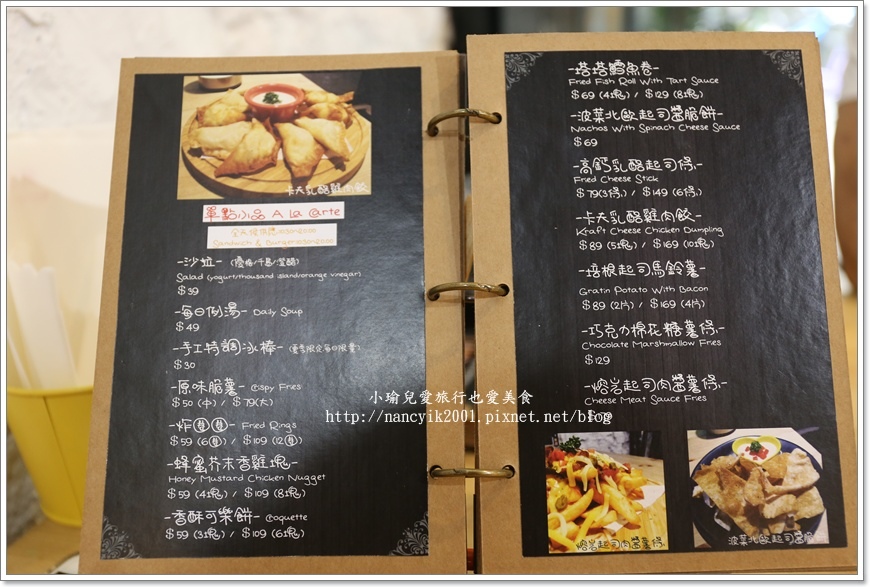 卡夫乳酪雞肉餃
單點小品 A La Carte
Sandwich & Burger
-沙拉-
Salad (yogurt/thousand island/orange vinegar)
$39
-每日例湯- Daily Soup
$49
-手工特調冰棒- (夏季限定每日限量)
$30
-原味脆薯- Crispy Fries
$50 (中) / $79(大)
-炸圈圈- Fried Rings
$59 (6圈) / $109 (12圈)
-蜂蜜芥末香雞塊-
Honey Mustard Chicken Nugget
$59 (4塊) / $109 (8塊)
-香酥可樂餅- Coquette
$59 (3塊) / $109 (6塊)
-塔塔鱈魚卷-
Fried Fish Roll With Tart Sauce
$69 (4塊) / $129 (8塊)
-波菜北歐起司醬脆餅-
Nachos With Spinach Cheese Sauce
$69
-高鈣乳酪起司條-
Fried Cheese Stick
$79(3條) / $149 (6條)
-卡夫乳酪雞肉餃-
Kraft Cheese Chicken Dumpling
$89 (5塊) / $169 (10塊)
-培根起司馬鈴薯-
Gratin Potato With Bacon
$89 (2片) / $169 (4片)
-巧克力棉花糖薯條-
Chocolate Marshmallow Fries
$129
-熔岩起司肉醬薯條-
Cheese Meat Sauce Fries
熔岩起司肉醬薯條
波菜北歐起司醬脆餅
小瑜兒愛旅行也愛美食
http://nancyik2001.pixnet.net/blog